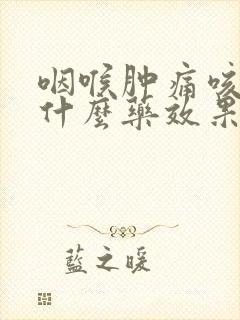 咽喉肿痛咳
什麼藥效果
藍之暖